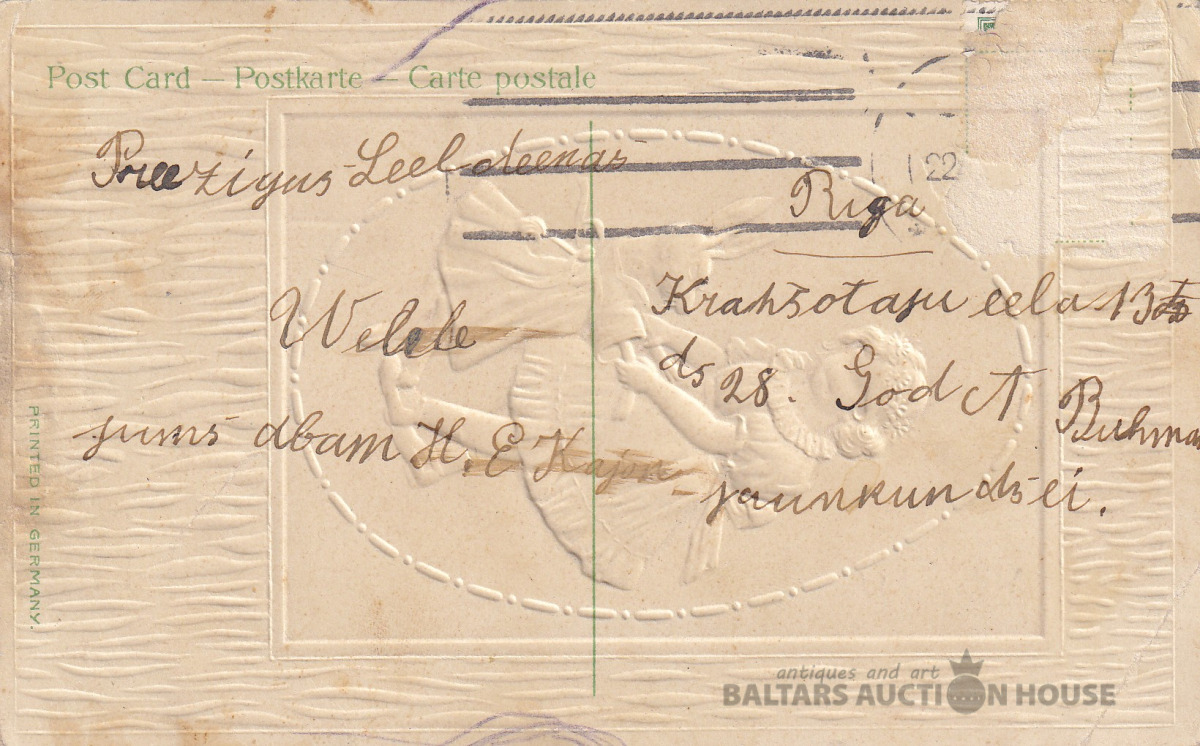 Post Card – Postkarte – Carte postale
Preezigus Leeldeenas
Welele
jums dbam H. E Kajva
22
Riga
Krahsotaju eela 13
ds 28. God A Buhma
jaunkundsei.
PRINTED IN GERMANY.
antiques and art
BALTARS AUCTION HOUSE